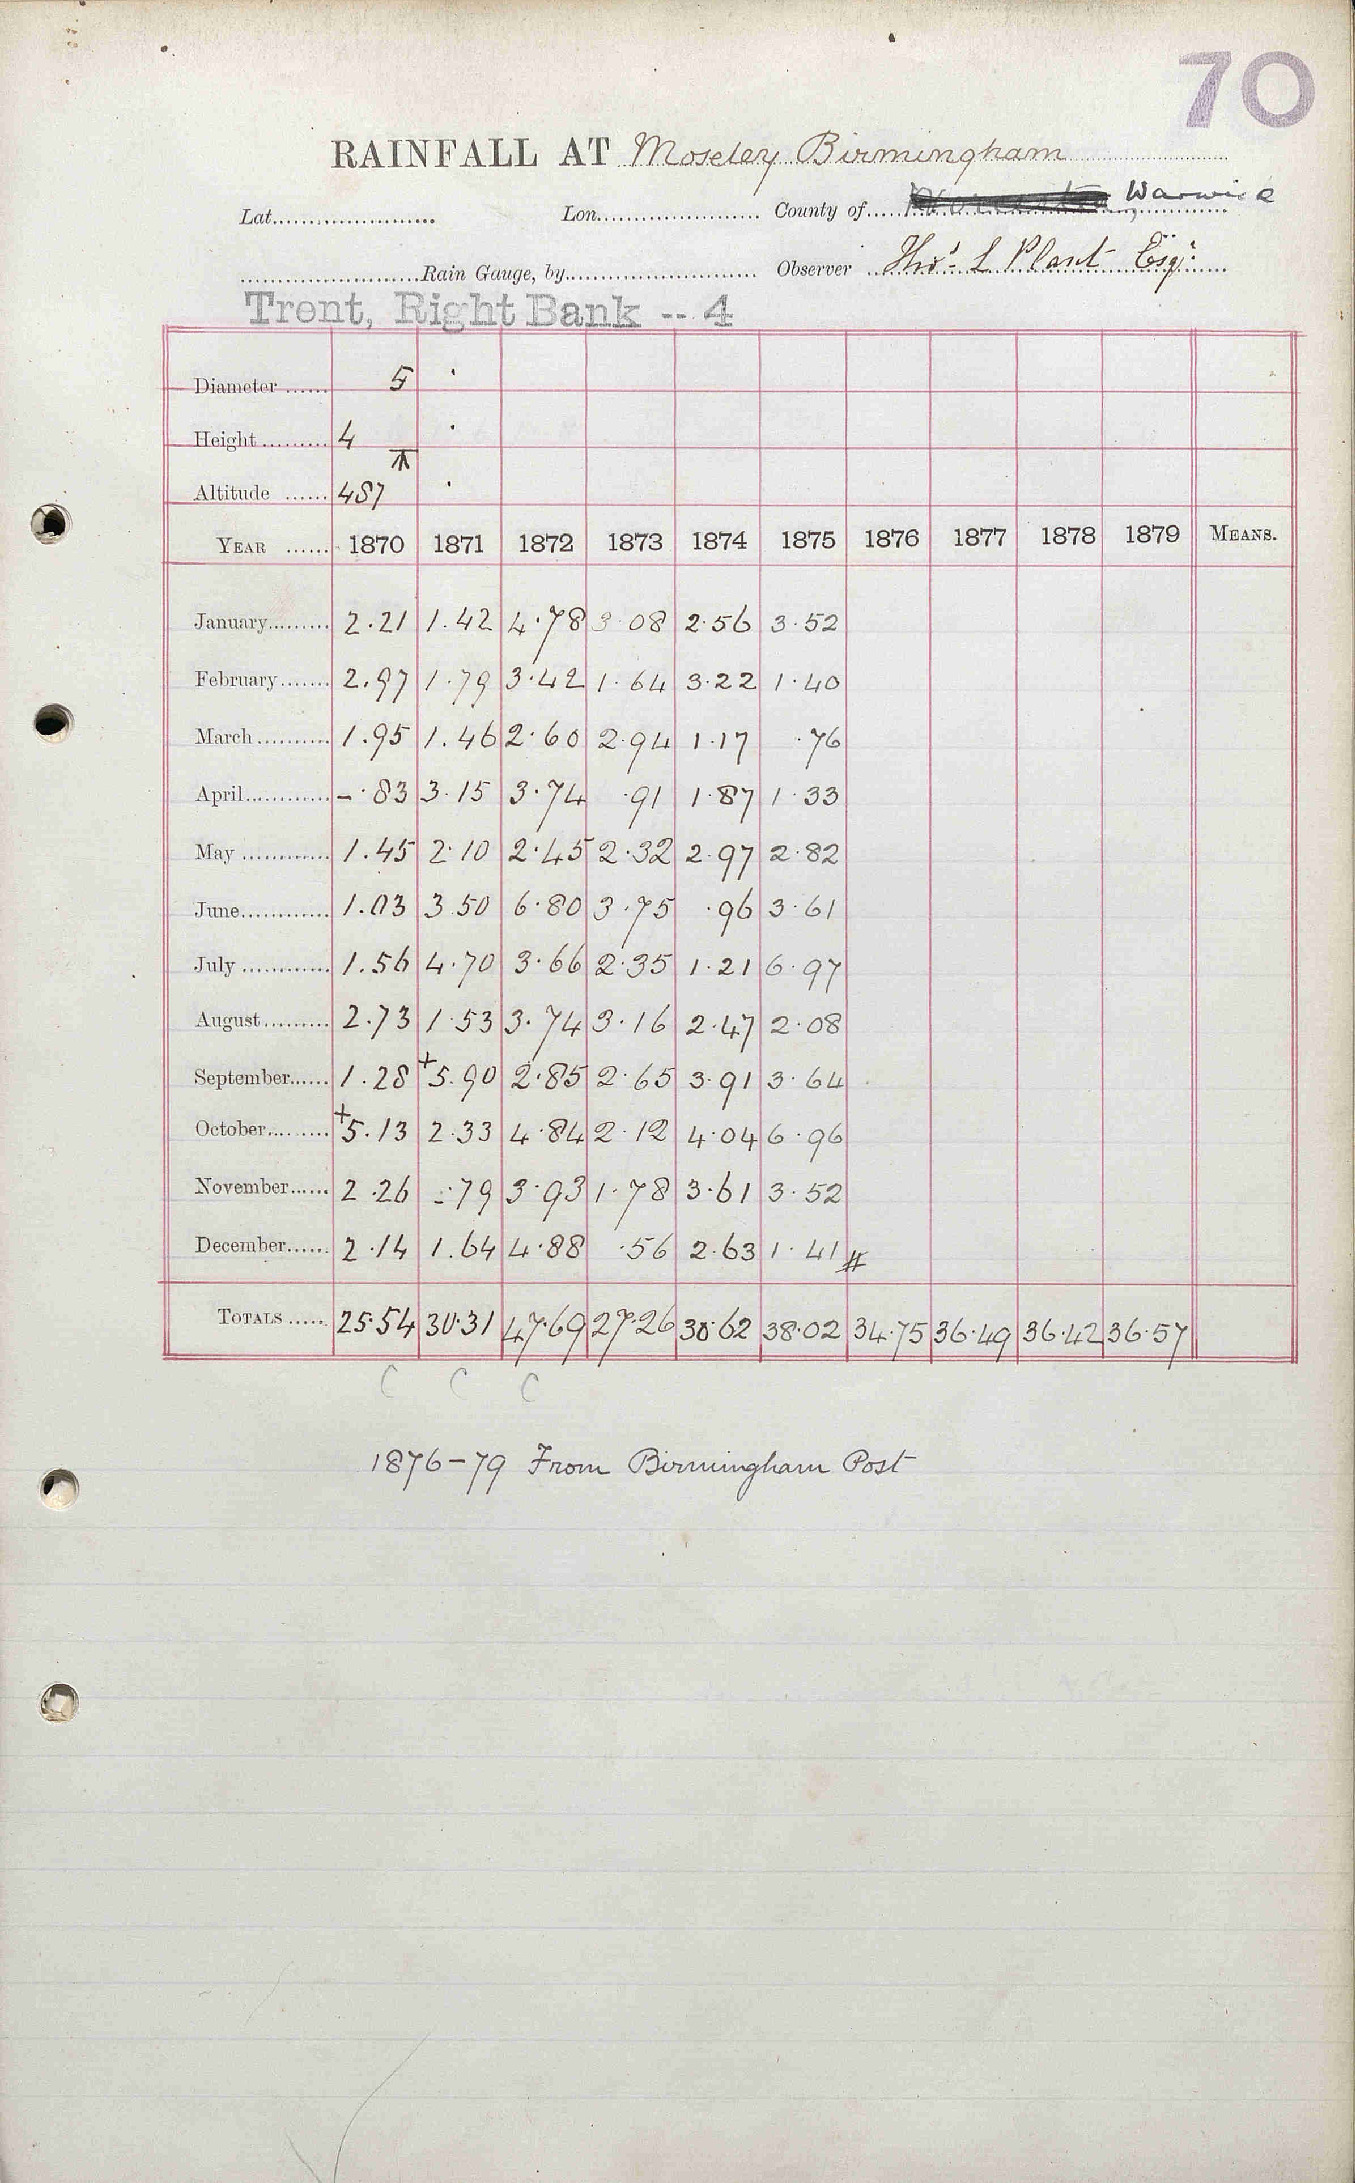 70
RAINFALL AT Moseley Birmingham
Lat. Lon. County of Warwick
Rain Gauge, by Observer Thos. L Plant Esqr.
Trent, Right Bank -- 4
Diameter 5
Height 4
Altitude 457
YEAR 1870 1871 1872 1873 1874 1875 1876 1877 1878 1879 MEANS.
January 2.21 1.42 4.78 3.08 2.56 3.52
February 2.97 1.79 3.42 1.64 3.22 1.40
March 1.95 1.46 2.60 2.94 1.17 .76
April -.83 3.15 3.74 .91 1.87 1.33
May 1.45 2.10 2.45 2.32 2.97 2.82
June 1.03 3.50 6.80 3.75 .96 3.61
July 1.56 4.70 3.66 2.35 1.21 6.97
August 2.73 1.53 3.74 3.16 2.47 2.08
September 1.28 +5.90 2.85 2.65 3.91 3.64
October +5.13 2.33 4.84 2.12 4.04 6.96
November 2.26 -.79 3.93 1.78 3.61 3.52
December 2.14 1.64 4.88 .56 2.63 1.41 #
TOTALS 25.54 30.31 47.69 27.26 30.62 38.02 34.75 36.49 36.42 36.57
C C C
1876-79 From Birmingham Post